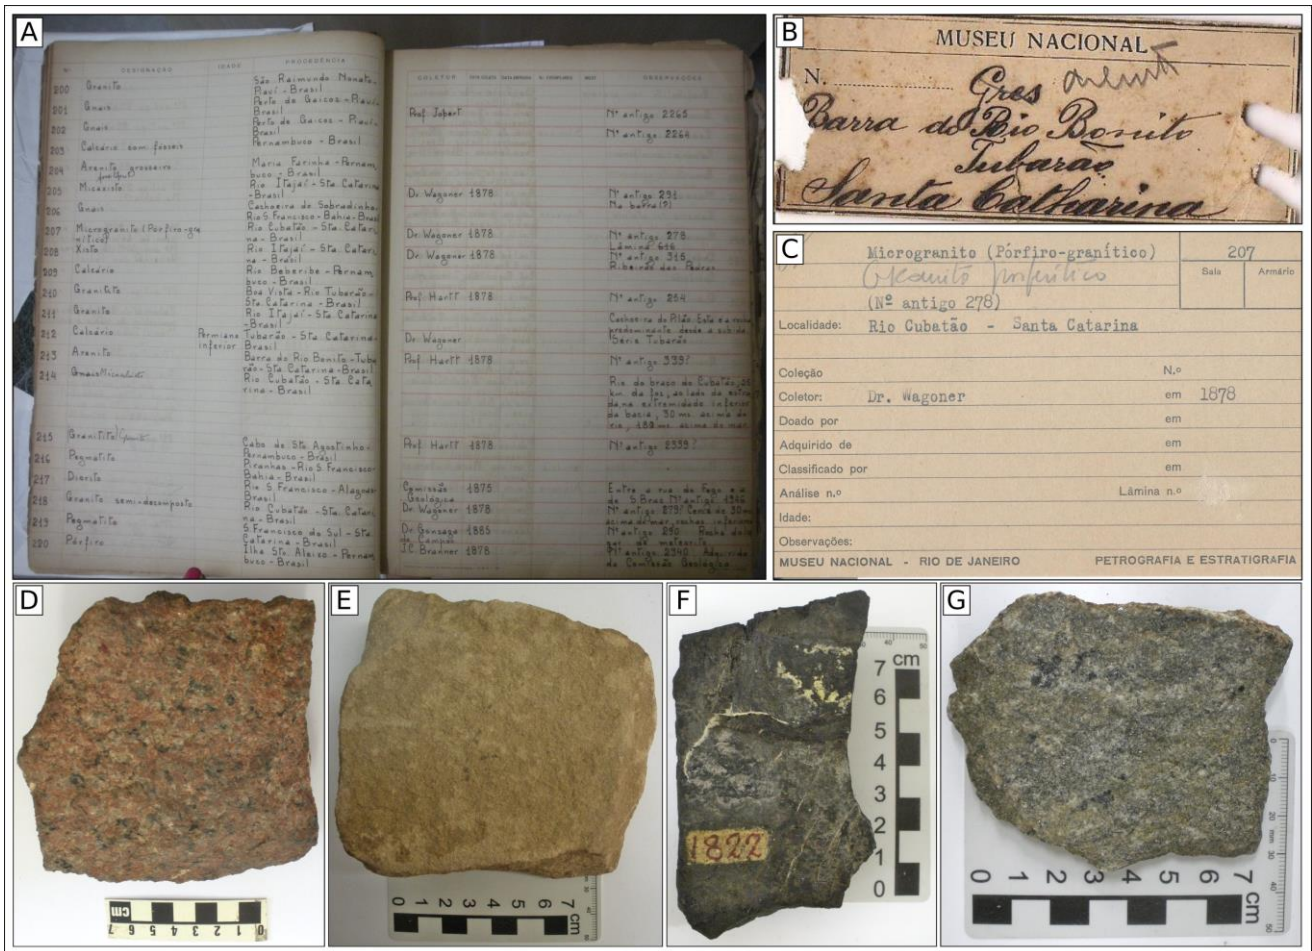 A
Nº DESIGNAÇÃO IDADE PROCEDÊNCIA
200 Granito São Raimundo Nonato-
Piauí - Brasil
201 Gnais Porto de Gaicos - Piauí-
Brasil
202 Gnais Porto de Gaicos - Piauí-
Brasil
203 Calcário com fosseis Pernambuco - Brasil
204 Arenito grosseiro Maria Farinha - Pernam
buco - Brasil
205 Micaxisto Rio Itajaí - Sta. Catarina
- Brasil
206 Gnais Cachoeira de Sobradinho-
Rio S. Francisco - Bahia - Brasil
207 Microgranito (Pórfiro-gra Rio Cubatão - Sta. Catari
nítico) na - Brasil
208 Xisto Rio Itajaí - Sta. Catari
na - Brasil
209 Calcário Rio Beberibe - Pernam
buco - Brasil
210 Granitito Boa Vista - Rio Tubarão -
Sta. Catarina - Brasil
211 Granito Rio Itajaí - Sta. Catarina
- Brasil
212 Calcário Permiano Tubarão - Sta. Catarina-
inferior Brasil
213 Arenito Barra do Rio Bonito - Tuba
rão - Sta. Catarina - Brasil
214 Gnais Rio Cubatão - Sta. Cata
rina - Brasil
215 Granitito Cabo de Sto. Agostinho-
Pernambuco - Brasil
216 Pegmatito Piranhas - Rio S. Francisco-
Bahia - Brasil
217 Diorito Rio S. Francisco - Alagoas
Brasil
218 Granito semi-decomposto Rio Cubatão - Sta. Catari
na - Brasil
219 Pegmatito S. Francisco do Sul - Sta.
Catarina - Brasil
220 Pórfiro Ilha Sto. Aleixo - Pernam
buco - Brasil
COLETOR OBSERVAÇÕES
Prof. Jobert Nº antigo 2265
Nº antigo 2264
Dr. Wagoner 1878 Nº antigo 291
Na barra (?)
Dr. Wagoner 1878 Nº antigo 278
Lâmina 646
Dr. Wagoner 1878 Nº antigo 316
Ribeirão das Pedras
Prof. Hartt 1878 Nº antigo 254
Cachoeira do Pilão. Esta é a rocha
predominante desde a sub. da
Dr. Wagoner Série Tubarão
Prof. Hartt 1878 Nº antigo 339?
Rio do braço do Cubatão, 25
km. da foz, ao lado da estra
da, na extremidade inferior
da bacia, 30 ms. acima do
rio, 180 ms. acima do mar
Prof. Hartt 1878 Nº antigo 2339?
Comissão 1875 Entre a rua do Fogo e a
Geológica de S. Braz. Nº antigo 1346
Dr. Wagoner 1878 Nº antigo 279? Cerca de 30 ms
acima do mar, rochas inferiores
Dr. Gonzaga 1885 Nº antigo 290
de Campos
J.C. Branner 1878 Nº antigo 2340. Adquirido
da Comissão Geológica
B
MUSEU NACIONAL
N. Gres arenito
Barra do Rio Bonito
Tubarão
Santa Catharina
C
Microgranito (Pórfiro-granítico) 207
Granito porfirítico Sala Armário
(Nº antigo 278)
Localidade: Rio Cubatão - Santa Catarina
Coleção N.o
Coletor: Dr. Wagoner em 1878
Doado por em
Adquirido de em
Classificado por em
Análise n.o Lâmina n.o
Idade:
Observações:
MUSEU NACIONAL - RIO DE JANEIRO PETROGRAFIA E ESTRATIGRAFIA
D
cm 7 6 5 4 3 2 1 0
E
0 1 2 3 4 5 6 7 cm
F
40 50
7 cm
6
5
4
3
2
1
0
1822
G
0 10 20 mm 30 40 50
0 1 2 3 4 5 6 7 cm